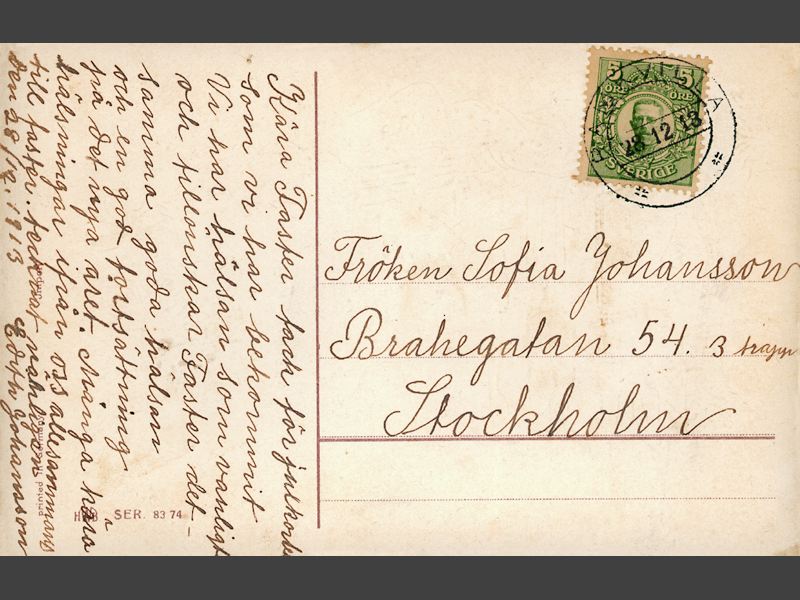 Kära Faster tack för julkortet
som vi har bekommit
Vi har hälsan som vanligt
och tillönskar Faster det-
samma goda hälsan
och en god fortsättning
på det nya året. Många kära
hälsningar ifrån oss allesammans
till faster, tecknat
den 28/12 1913 Edth Johansson
5 5
ÖRE ÖRE
SVERIGE
28 12 13
Fröken Sofia Johansson
Brahegatan 54. 3 trapp
Stockholm
printed
SER. 83 74